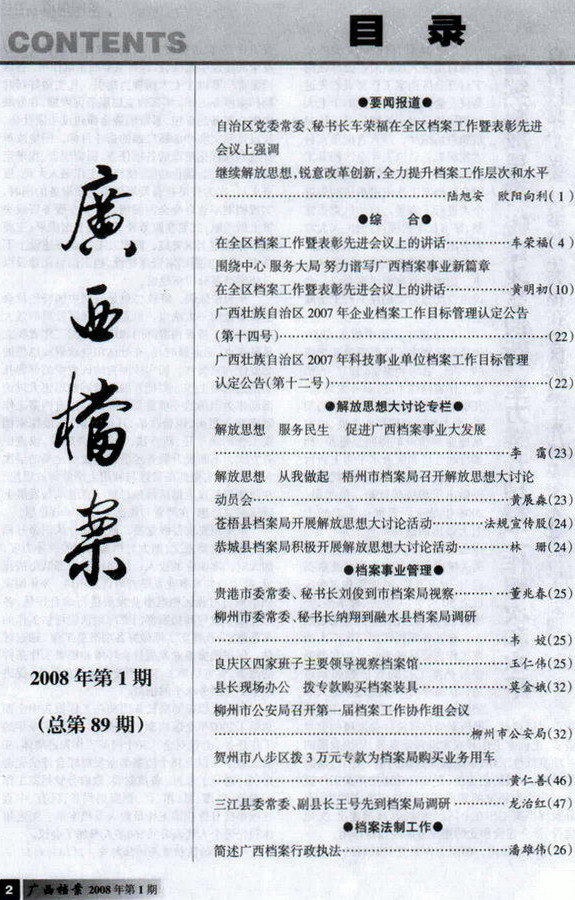 CONTENTS
目 录
廣西檔案
2008 年第 1 期
(总第 89 期)
●要闻报道●
自治区党委常委、秘书长车荣福在全区档案工作暨表彰先进
会议上强调
继续解放思想,锐意改革创新,全力提升档案工作层次和水平
……陆旭安 欧阳向利( 1 )
●综 合●
在全区档案工作暨表彰先进会议上的讲话……车荣福( 4 )
围绕中心 服务大局 努力谱写广西档案事业新篇章
在全区档案工作暨表彰先进会议上的讲话……黄明初(10)
广西壮族自治区 2007 年企业档案工作目标管理认定公告
(第十四号)……(22)
广西壮族自治区 2007 年科技事业单位档案工作目标管理
认定公告(第十二号)……(22)
●解放思想大讨论专栏●
解放思想 服务民生 促进广西档案事业大发展
……李 霭(23)
解放思想 从我做起 梧州市档案局召开解放思想大讨论
动员会……黄展淼(23)
苍梧县档案局开展解放思想大讨论活动……法规宣传股(24)
恭城县档案局积极开展解放思想大讨论活动……林 珊(24)
●档案事业管理●
贵港市委常委、秘书长刘俊到市档案局视察……董兆春(25)
柳州市委常委、秘书长纳翔到融水县档案局调研
……韦 姣(25)
良庆区四家班子主要领导视察档案馆……王仁伟(25)
县长现场办公 拨专款购买档案装具……莫金娥(32)
柳州市公安局召开第一届档案工作协作组会议
……柳州市公安局(32)
贺州市八步区拨 3 万元专款为档案局购买业务用车
……黄仁善(46)
三江县委常委、副县长王号先到档案局调研……龙治红(47)
●档案法制工作●
简述广西档案行政执法……潘雄伟(26)
2 广西档案 2008 年第 1 期